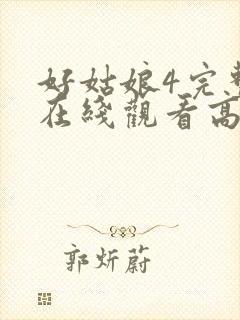 好姑娘4完整
在线觀看高
郭炘蔚